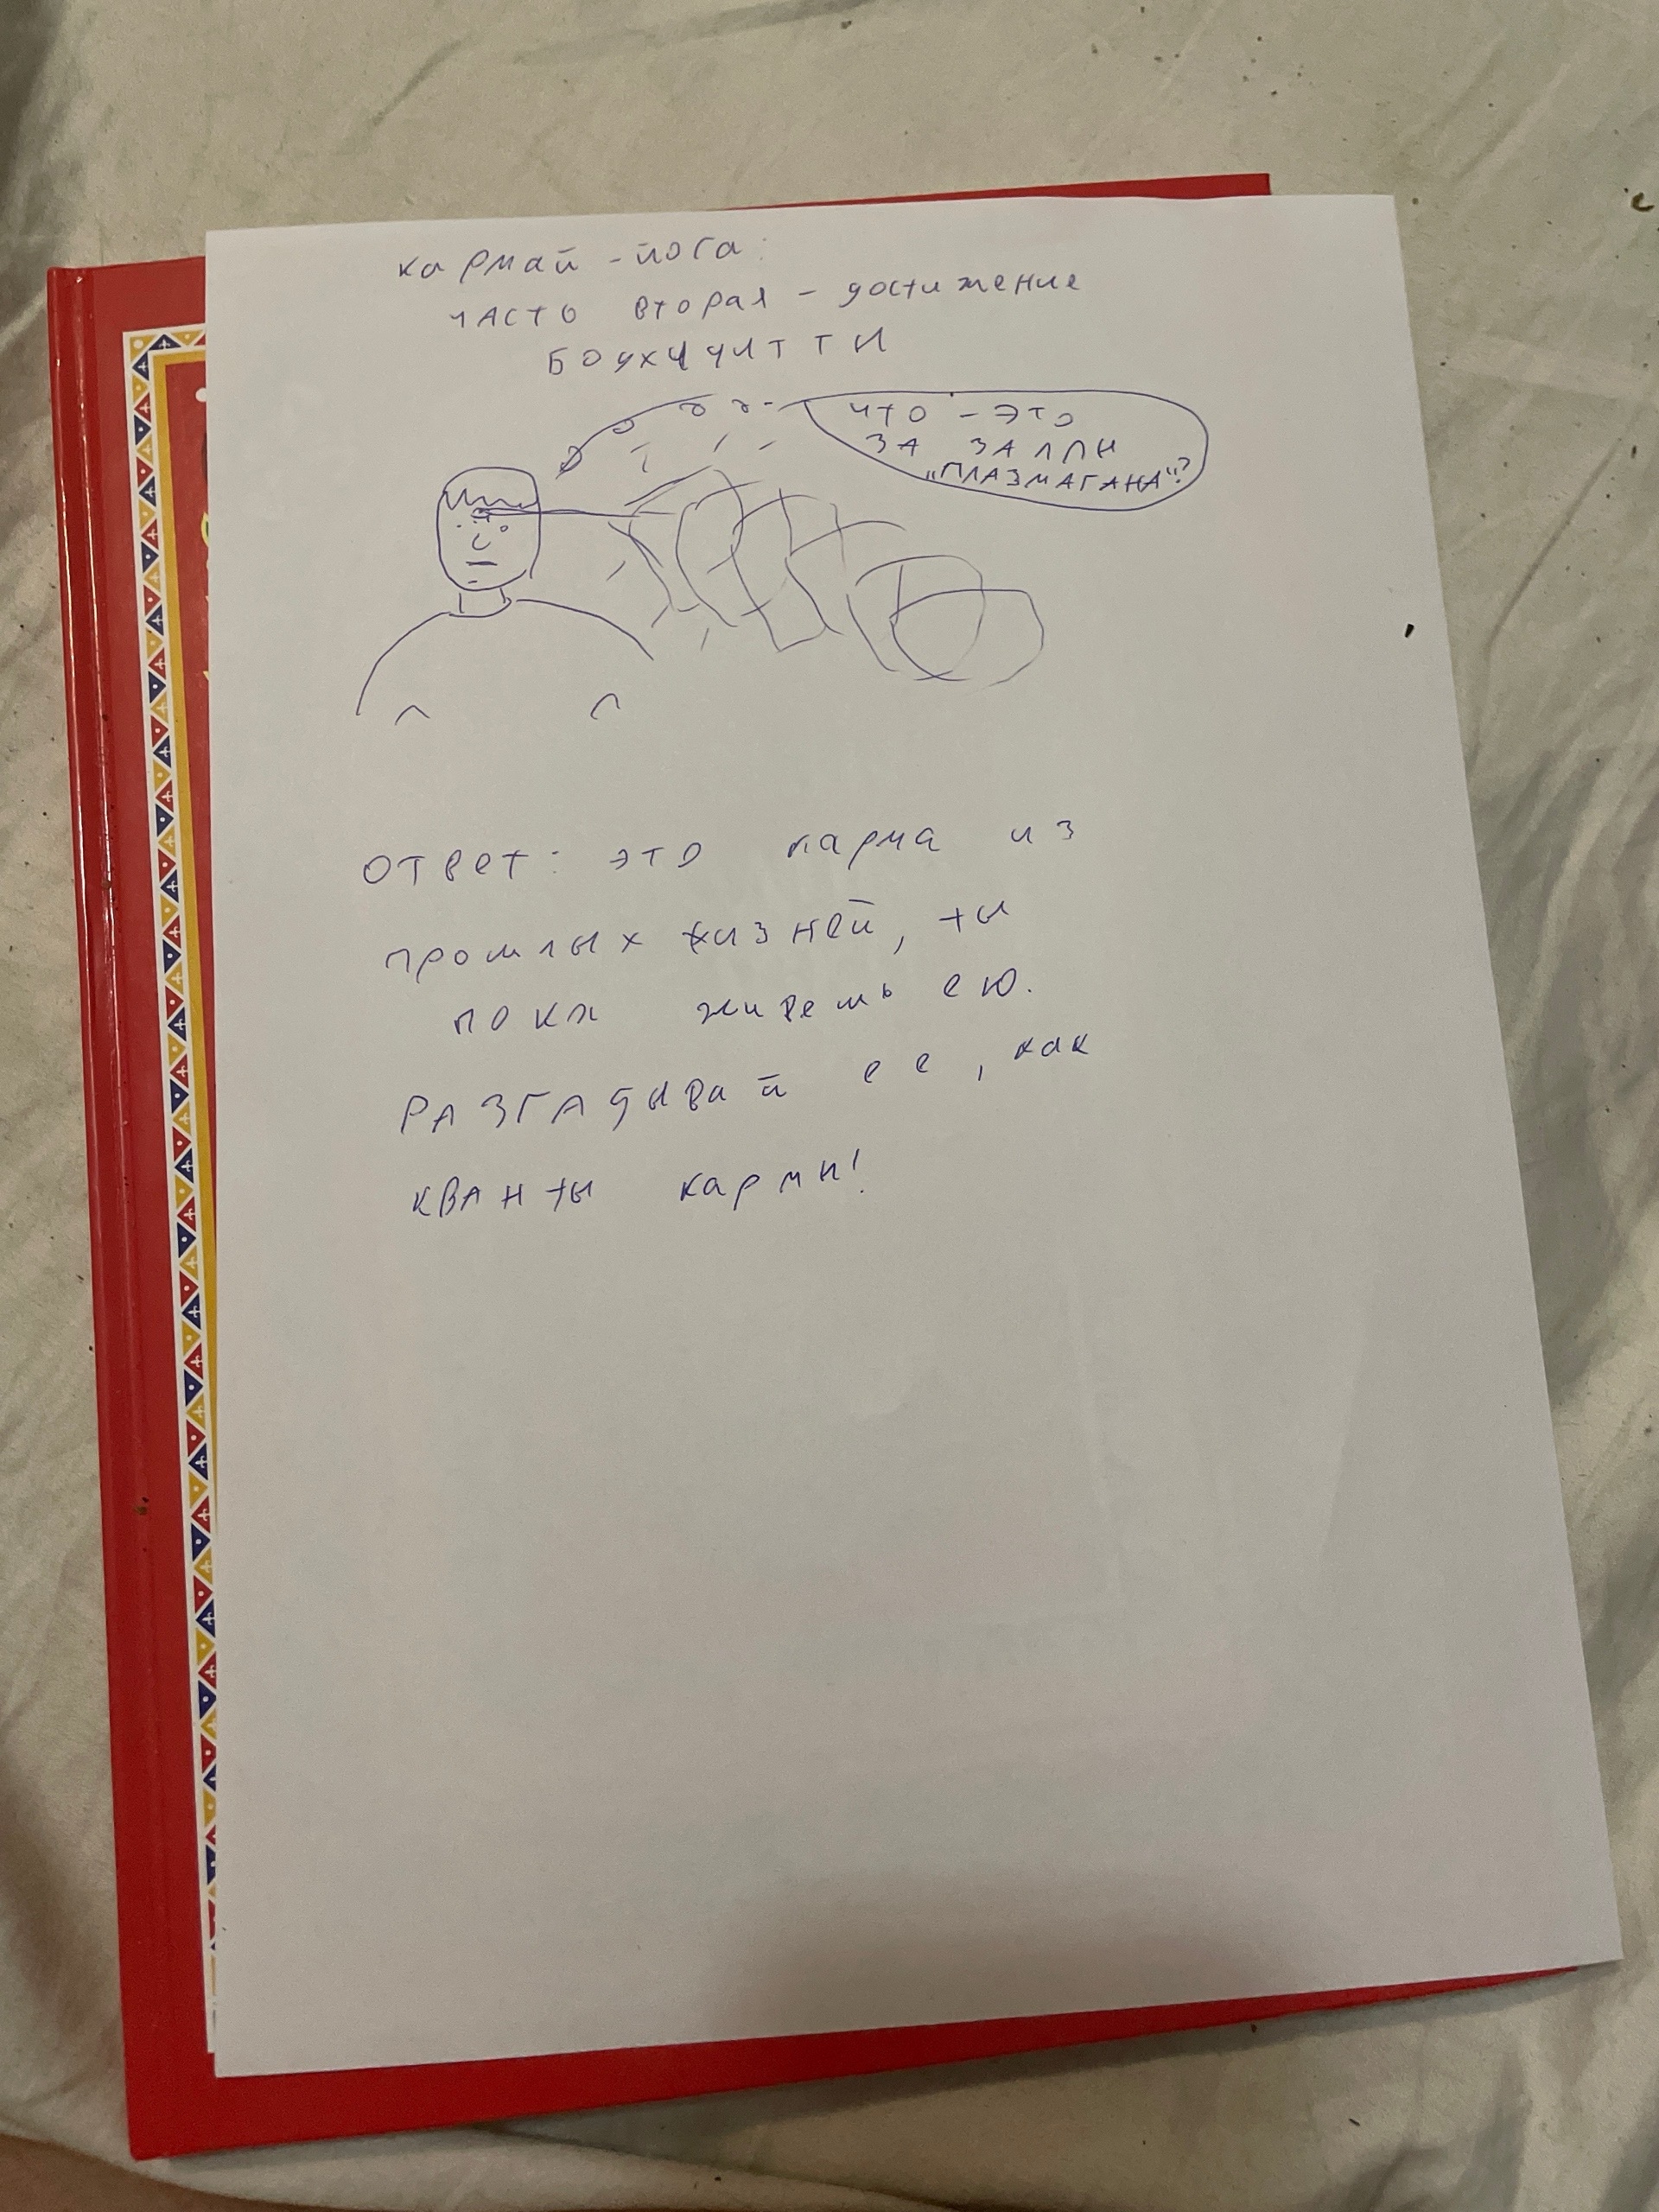 кармай - йога:
часть вторая - достижение
что - это
за залпы
„плазмагана“?
ответ: это карма из
прошлых жизней, ты
пока живешь ею.
разгадывай ее, как
кванты кармы!